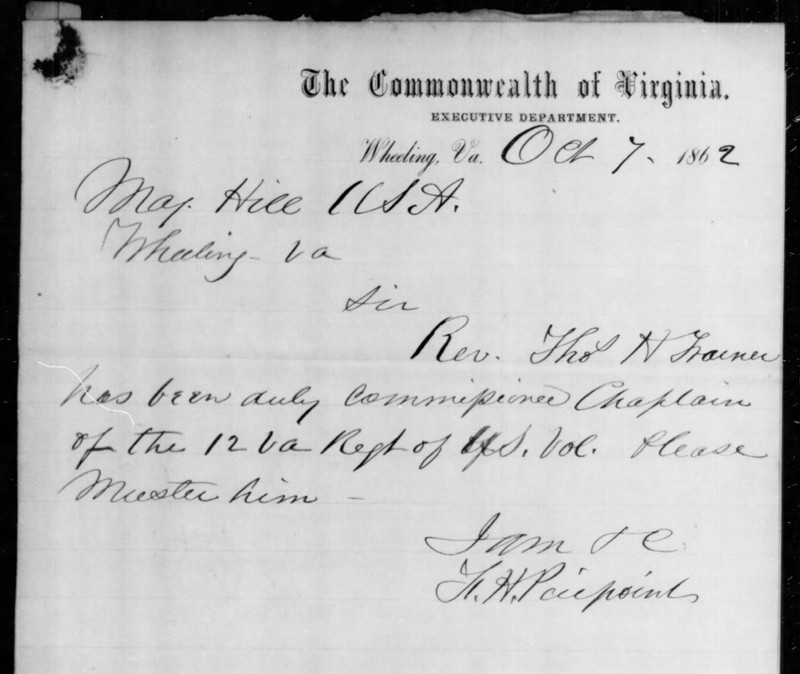 The Commonwealth of Virginia.
EXECUTIVE DEPARTMENT.
Wheeling, Va. Oct 7. 1862
Maj. Hill USA.
Wheeling - Va
Sir
Rev. Thos H Trainer
has been duly commissioned Chaplain
of the 12 Va Regt of US. Vol. Please
Muster him -
I am &c
F. H. Peirpoint